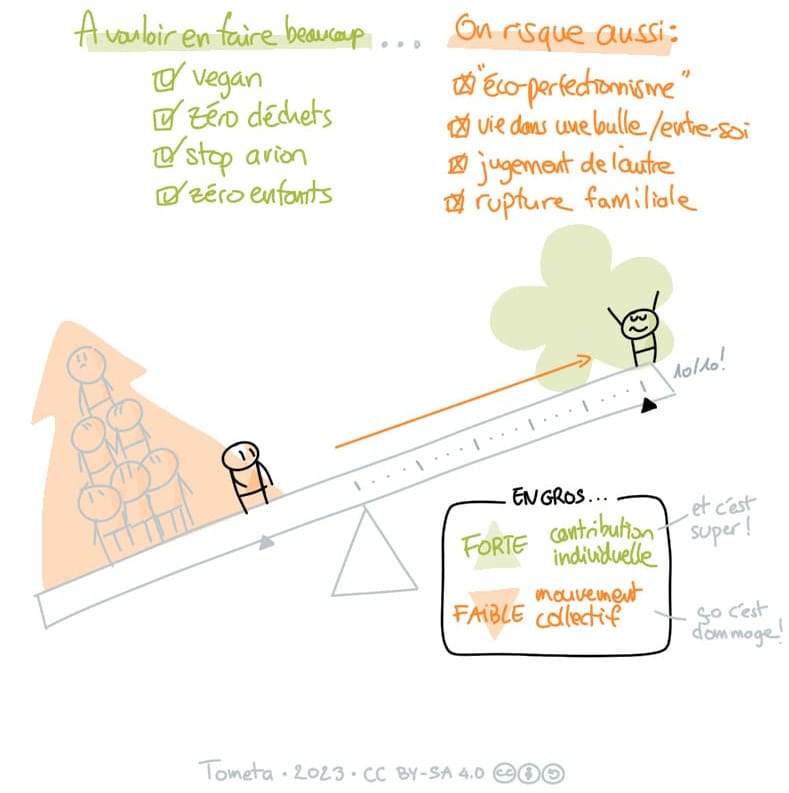 A vouloir en faire beaucoup ...
☑ vegan
☑ zéro déchets
☑ stop avion
☑ zéro enfants
On risque aussi:
☒ "éco-perfectionnisme"
☒ vie dans une bulle/entre-soi
☒ jugement de l'autre
☒ rupture familiale
10/10!
EN GROS...
FORTE contribution
individuelle
et c'est
super!
FAIBLE mouvement
collectif
ça c'est
dommage!
Tometa · 2023 · CC BY-SA 4.0